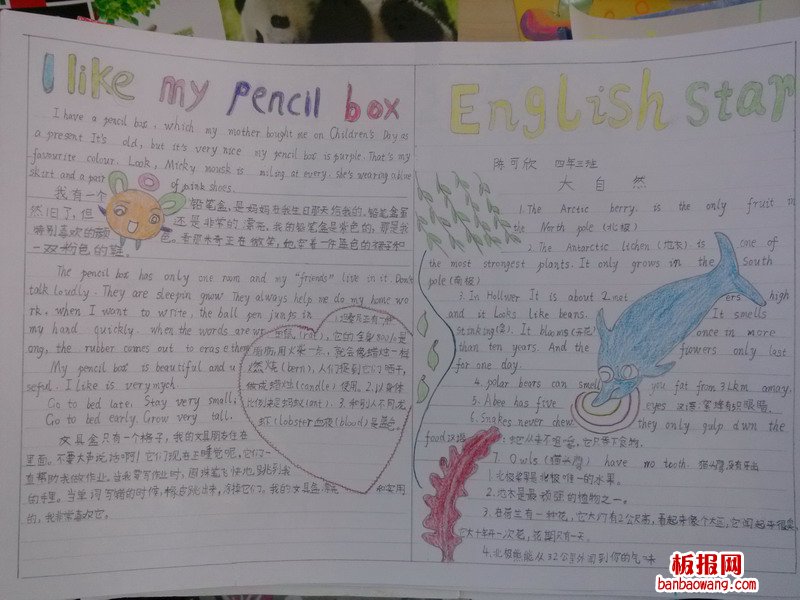 I like my pencil box
I have a pencil box, which my mother bought me on Children's Day as
a present It's old, but it's very nice my pencil box is purple. That's my
favourite colour. Look, Micky mousk is miling at every. she's wearing a blue
skirt and a pair of pink shoes.
我有一个 铅笔盒,是妈妈在我生日那天给我的.铅笔盒虽
然旧了,但 还是非常的漂亮,我的铅笔盒是紫色的,那是我
特别喜欢的颜 色。看那米奇正在微笑,她穿着一件蓝色的裙子和
一双粉色的鞋.
The pencil box has only one room and my "friends" live in it. Don't
talk loudly. They are sleepin gnow They always help me do my home wo
rk. when I want to write, the ball pen jumps in
my hand quickly. when the words are wr
ong, the rubber comes out to erase them
My pencil box is beautiful and u
seful. I like is verymych.
Go to bed late, Stay very small;
Go to bed early. Grow very tall.
(rat), 它的全身80%是
脂肪,用火柴一点,就会像蜡烛一样
燃烧(bern),人们捉到它们晒干,
做成蜡烛(candle)使用. 2.以身体
比例来定蚂蚁(ant). 3.和别人不同,龙
虾(lobster)血液(blood)是蓝色.
文具盒只有一个格子,我的文具朋友住在
里面。不要大声说话啊!它们现在正睡觉呢,它们一
直帮助我做作业。当我要写作业时,圆珠笔飞快地跳到我
的手里。当单词写错的时候,橡皮跳出来,涂掉它们。我的文具盒 和实用
的,我非常喜欢它。
English Star
陈可欣 四年三班
大自然
1. The Arctic berry. is the only fruit in
the North pole (北极)
2. The Antarctic lichen (地衣). is one of
the most strongest plants. It only grows in the South
pole (南极)
3. In Hollwer It is about 2 not ers high
and it looks like beans. It smells
stinking(臭). It blooms(开花) once in more
than ten years. And the flowers only last
for one day.
4. polar bears can smell you fat from 32km away.
5. A bee has five eyes
6. Snakes never chew they only gulp dwn the
food :蛇从来不咀嚼,它只吞下食物.
7. Owls (猫头鹰) have no teoth. 猫头鹰没有牙齿
1.北极浆果是北极唯一的水果。
2.地衣是最顽强的植物之一。
3.在荷兰有一种花,它大约有2公尺高,看起来像个大豆,它闻起来很臭,
它大十年开一次花,花期只有一天.
4.北极熊能从32公里外闻到你的气味
板报网
banbaowang.com